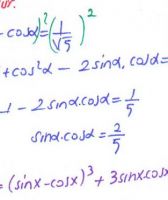 - cosα)² = (1/√5)²
+ cos²α - 2 sinα. cosα =
1 - 2 sinα.cosα = 1/5
sinα.cosα = 2/5
= (sinx - cosx)³ + 3sinx.cosx